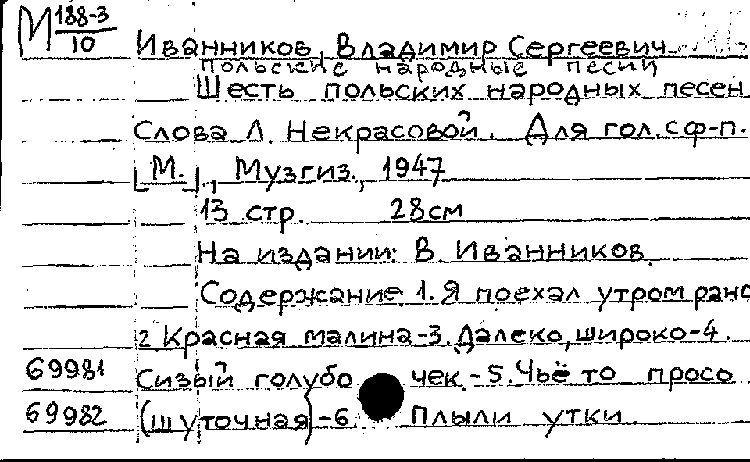 М 188-3
10
Иванников, Владимир Сергеевич
польские народные песни
Шесть польских народных песен
Слова Л. Некрасовой. Для гол. с ф-п.
[М.], Музгиз., 1947
13 стр. 28см
На издании: В. Иванников.
Содержание: 1. Я поехал утром рано
2. Красная малина-3. Далеко, широко-4.
69981 Сизый голубочек.-5. Чьё то просо
69982 (шуточная)-6. Плыли утки.